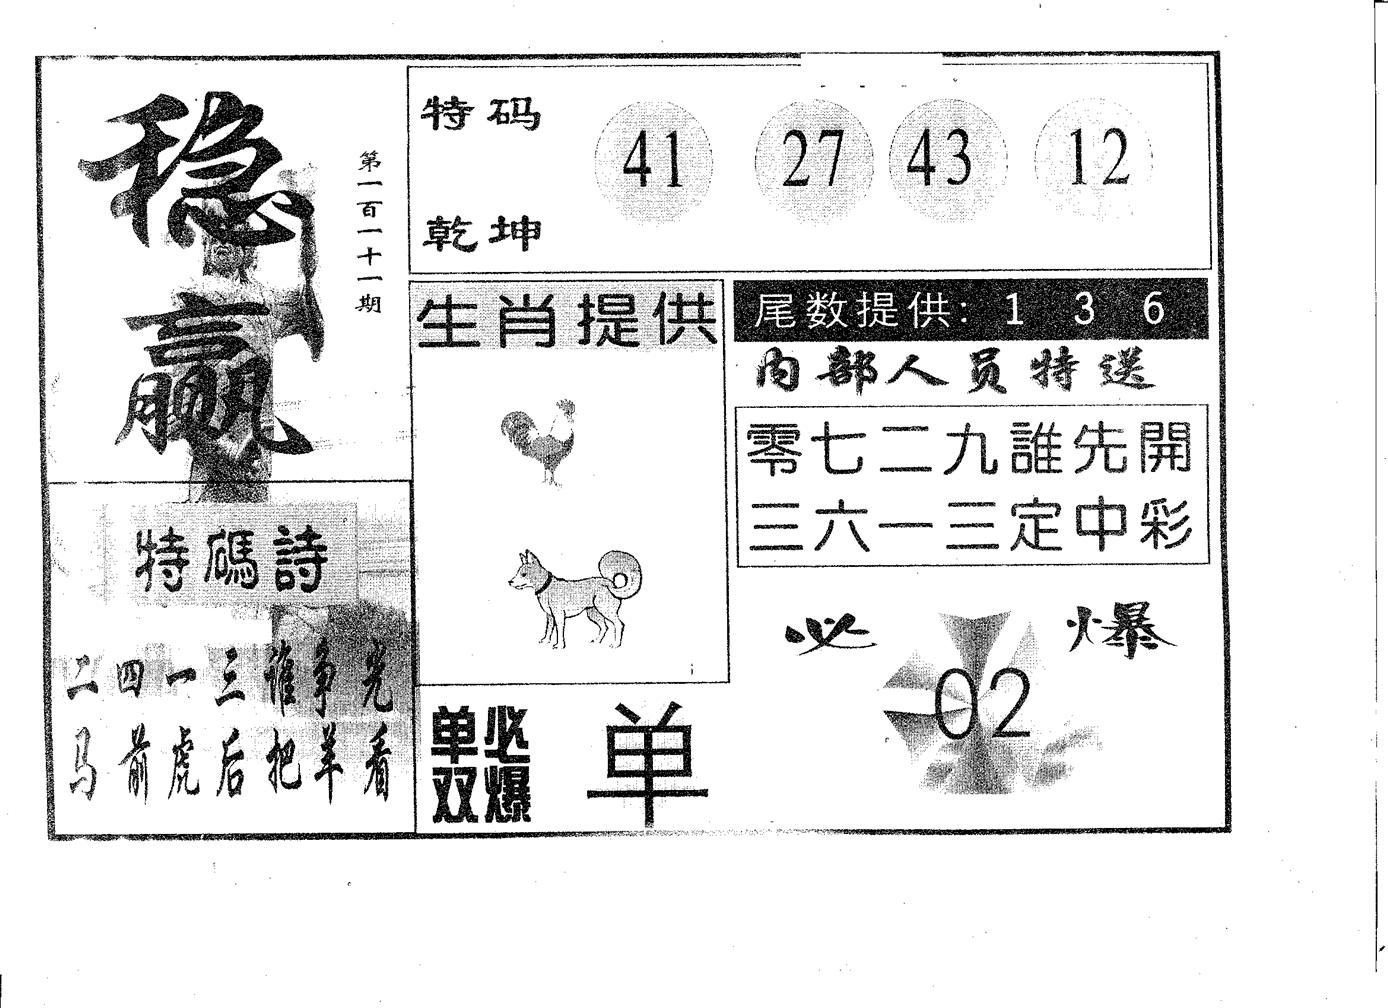 稳赢
第一百一十一期
特码
乾坤
41 27 43 12
生肖提供
尾数提供: 1 3 6
内部人员特送
零七二九誰先開
三六一三定中彩
特碼詩
二四一三谁争光
马前虎后把羊看
单双
必爆
单
必爆
02